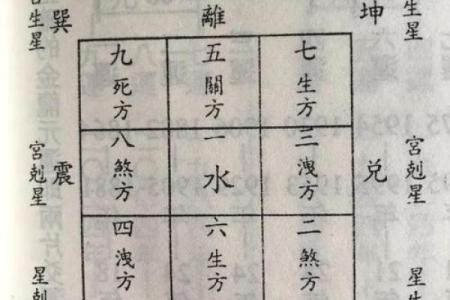 巽
離
坤
生星
生星
九 五 七
死方 關方 生方
八 一 三
煞方 水 洩方
震
兌
宮剋星
宮剋星
四 六 二
洩方 生方 煞方
星剋
星生